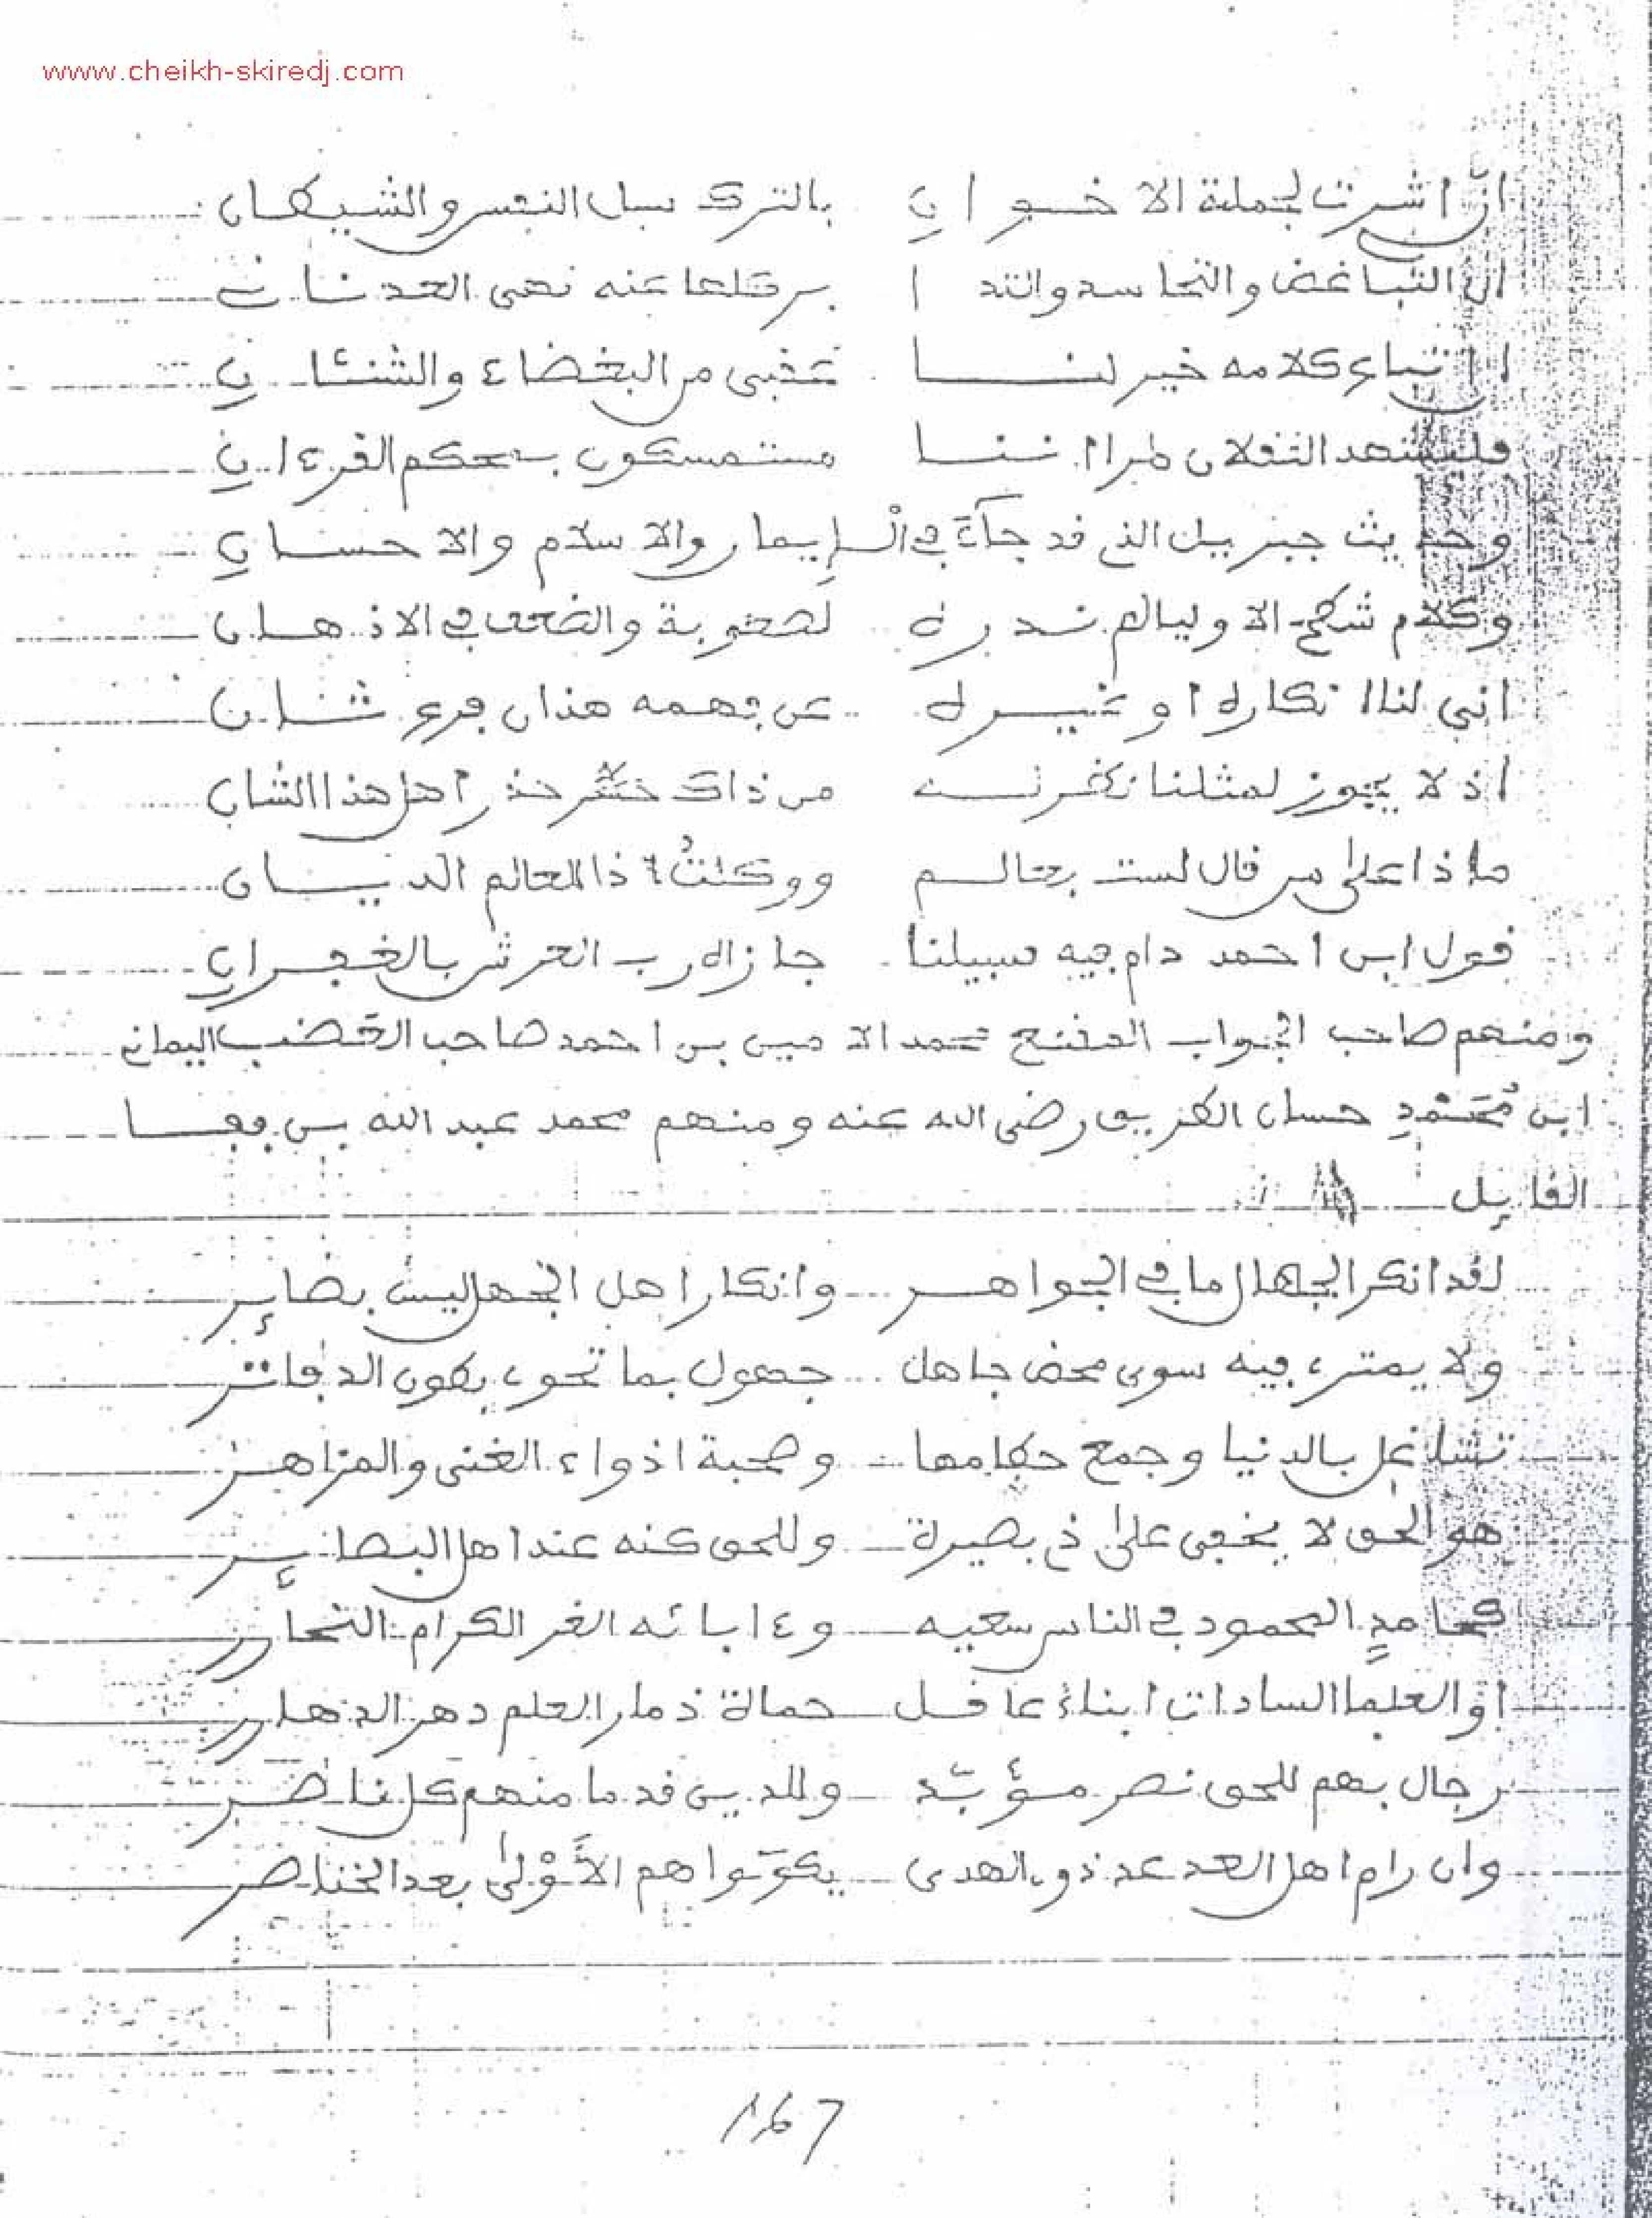 www.cheikh-skiredj.com
اني اشرت لجملة الاخوان بالترك سبل النفس والشيطان
ان التباغض والتحاسد والتدا بر كلها عنه نهى العدناني
كلامه خير لنا من البغضاء والشنئان
فليشهد الثقلان طرا اننا مستمسكون بمحكم القرءان
وحديث جبريل الذي قد جآءَ في الْـإيمان والاسلام والاحسان
وكلام شطح الاوليا لم ندره لصعوبة والضعف في الاذهان
انى لنا انكاره او غيره عن فهمه هذان فرع ثان
اذ لا يجوز لمثلنا من ذاك حذر اهل هذا الشان
ماذا على من قال لست بعالم ووكلتُ ذا للعالم الديان
قول ابن احمد دام فيه سبيلنا جازاه رب العرش بالغفران
ومنهم صاحب الجواب المقنع محمد الامين بن احمد صاحب القضب اليماني
ابن حسان رضى الله عنه ومنهم محمد عبد الله بن
القايل
لقد انكر الجهال ما في الجواهر وانكار اهل الجهل ليس بضاير
ولا يمتري فيه سوى محض جاهل جهول بما تحوي بطون الدفاتر
تشاغل بالدنيا وجمع حطامها وصحبة اذواء الغنى والمزاهر
هو الحق لا يخفى على ذي بصيرة وللحق كنه عند اهل البصاير
كحامدٍ المحمود في الناس سعيه وءابائه الغر الكرام النحارر
او العلما السادات ابناءُ عاقل حماة ذمار العلم دهر الدهارر
رجال بهم للحق نصر مؤبّد وللدين قدما منهم كل ناصر
وان رام اهل العد عد ذوي الهدى يكونوا هم الأُوْلى بعد الخناصر
167